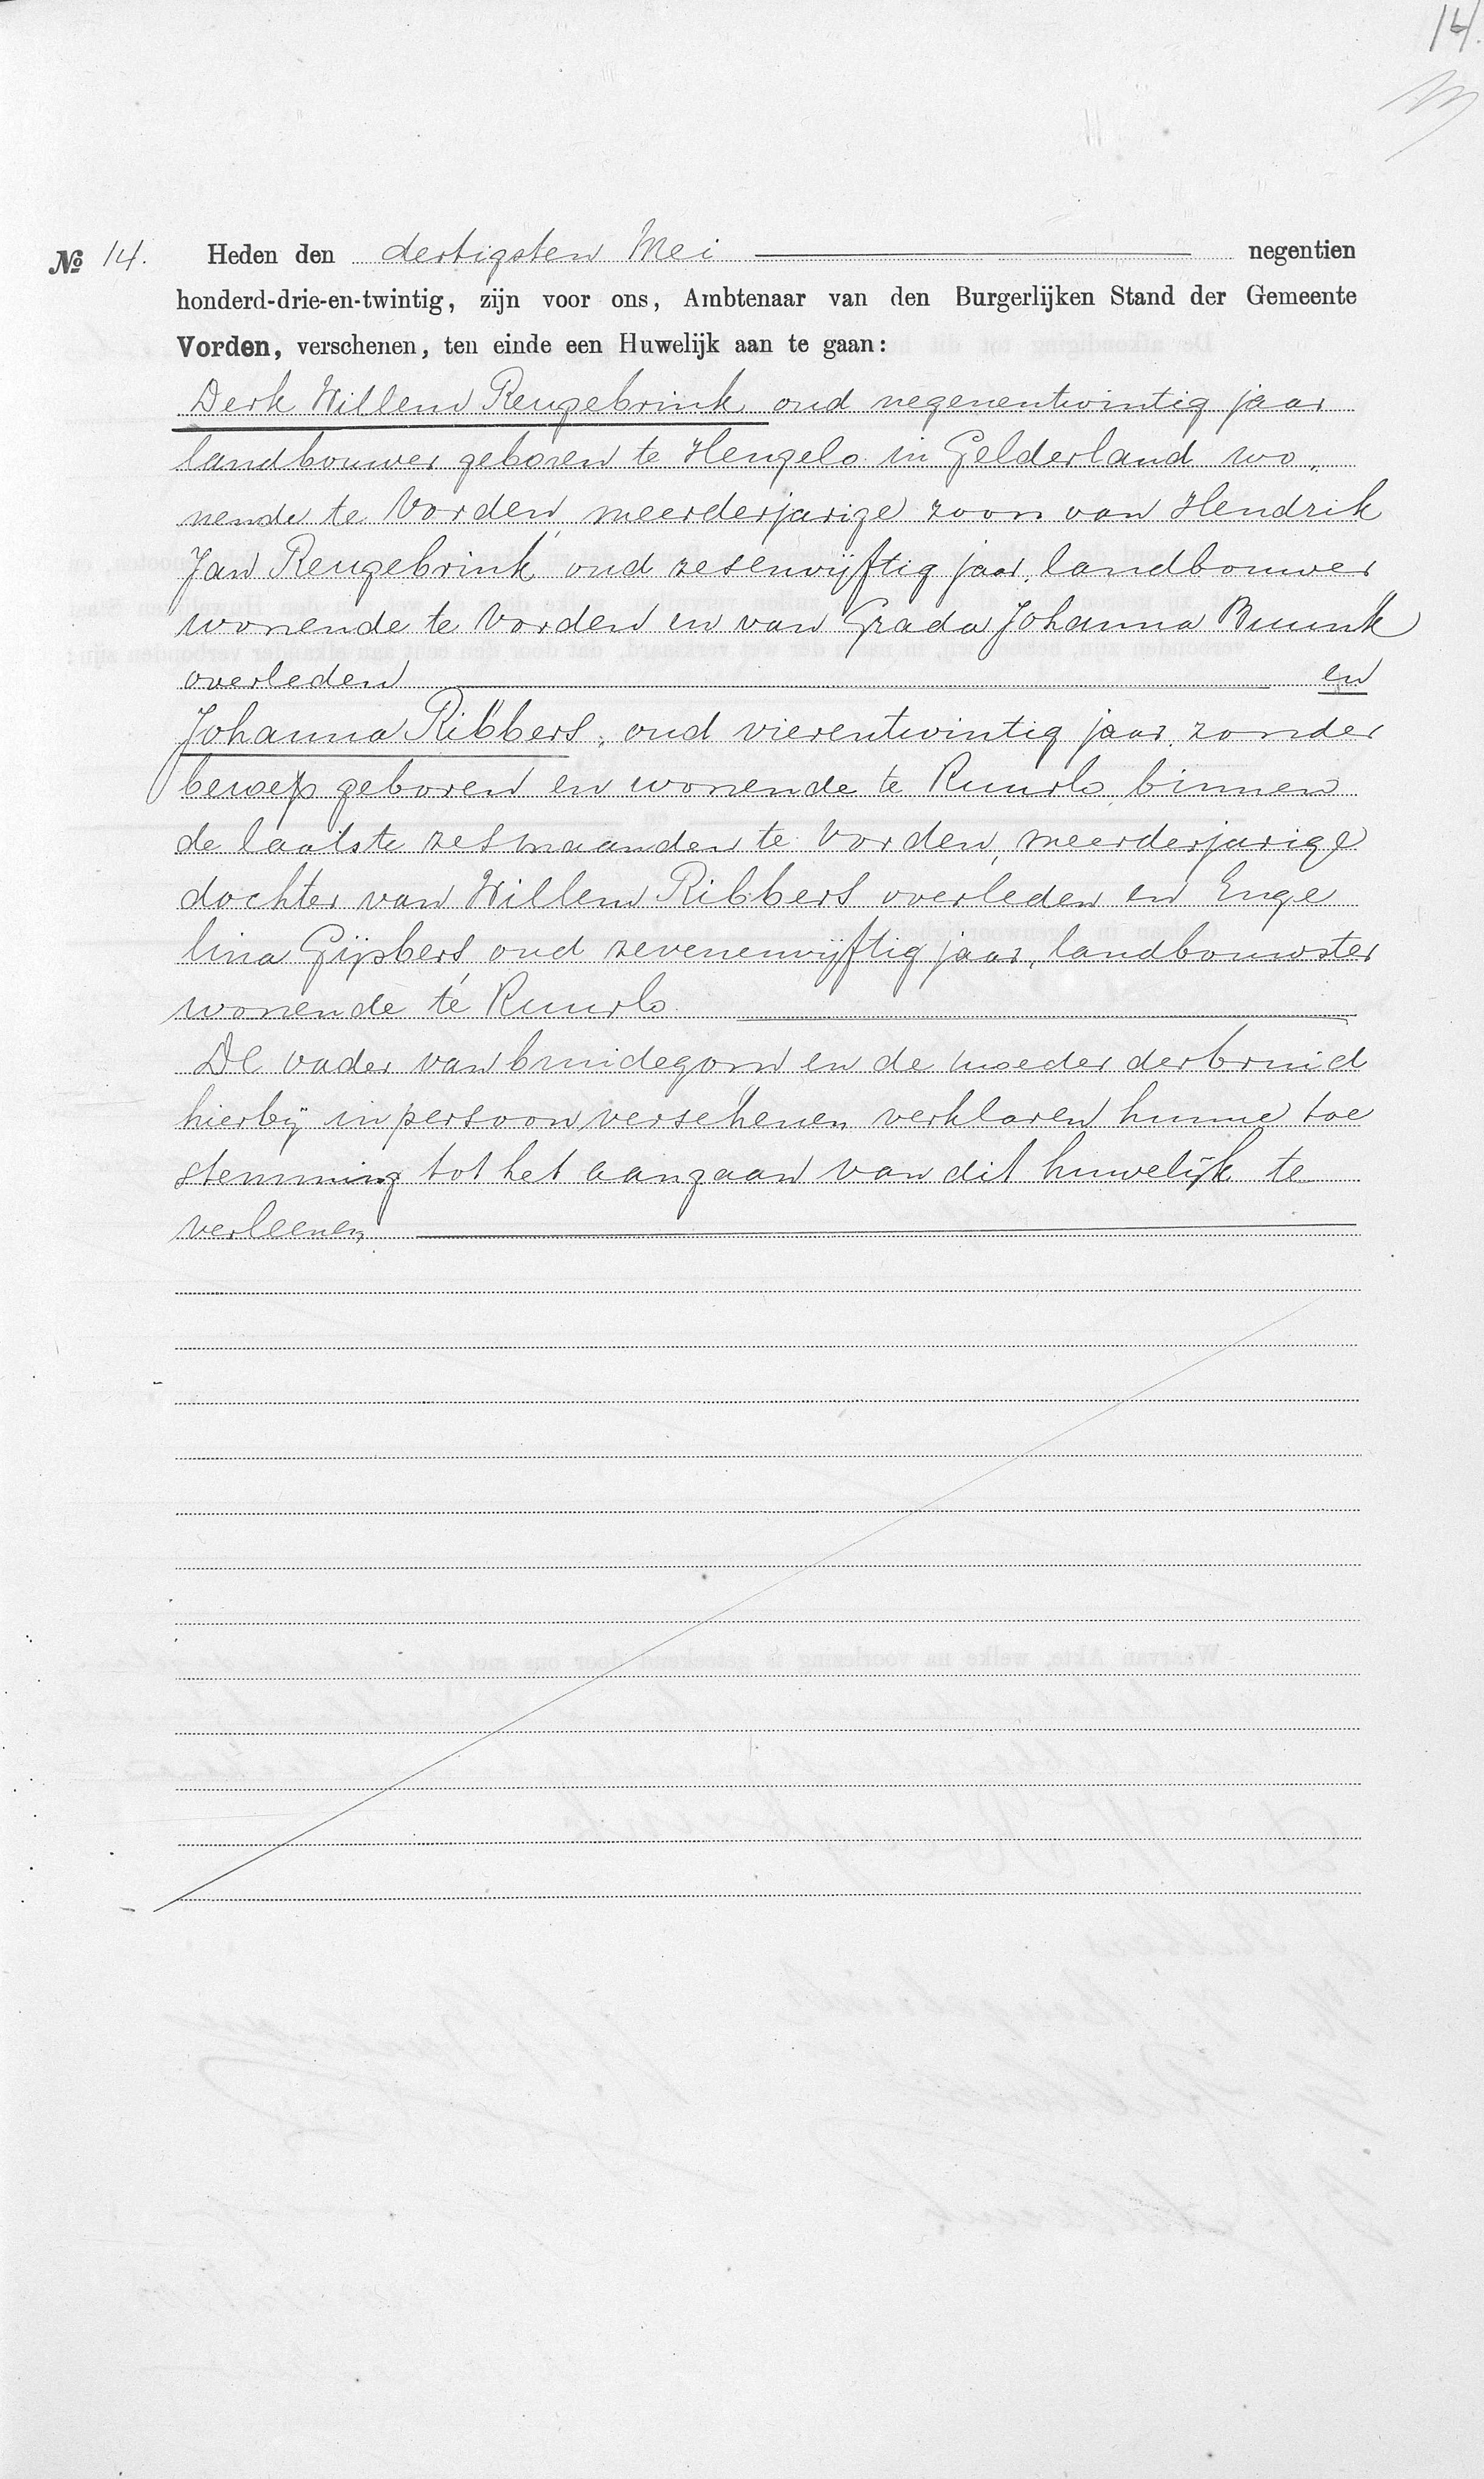 14.
№ 14. Heden den dertigsten Mei negentien
honderd-drie-en-twintig, zijn voor ons, Ambtenaar van den Burgerlijken Stand der Gemeente
Vorden, verschenen, ten einde een Huwelijk aan te gaan:
Derk Willem Reugebrink oud negenentwintig jaar
landbouwer geboren te Hengelo in Gelderland wo„
nende te Vorden, meerderjarige zoon van Hendrik
Jan Reugebrink, oud zesenvijftig jaar, landbouwer
wonende te Vorden en van Grada Johanna Buunk
overleden en
Johanna Ribbers, oud vierentwintig jaar, zonder
beroep geboren en wonende te Ruurlo, binnen
de laatste zes maanden te Vorden, meerderjarige
dochter van Willem Ribbers overleden en Enge
lina Gijsbers oud zevenenvijftig jaar, landbouwster
wonende te Ruurlo.
De vader van bruidegom en de moeder der bruid
hierbij in persoon verschenen verklaren hunne toe
stemming tot het aangaan van dit huwelijk te
verleenen